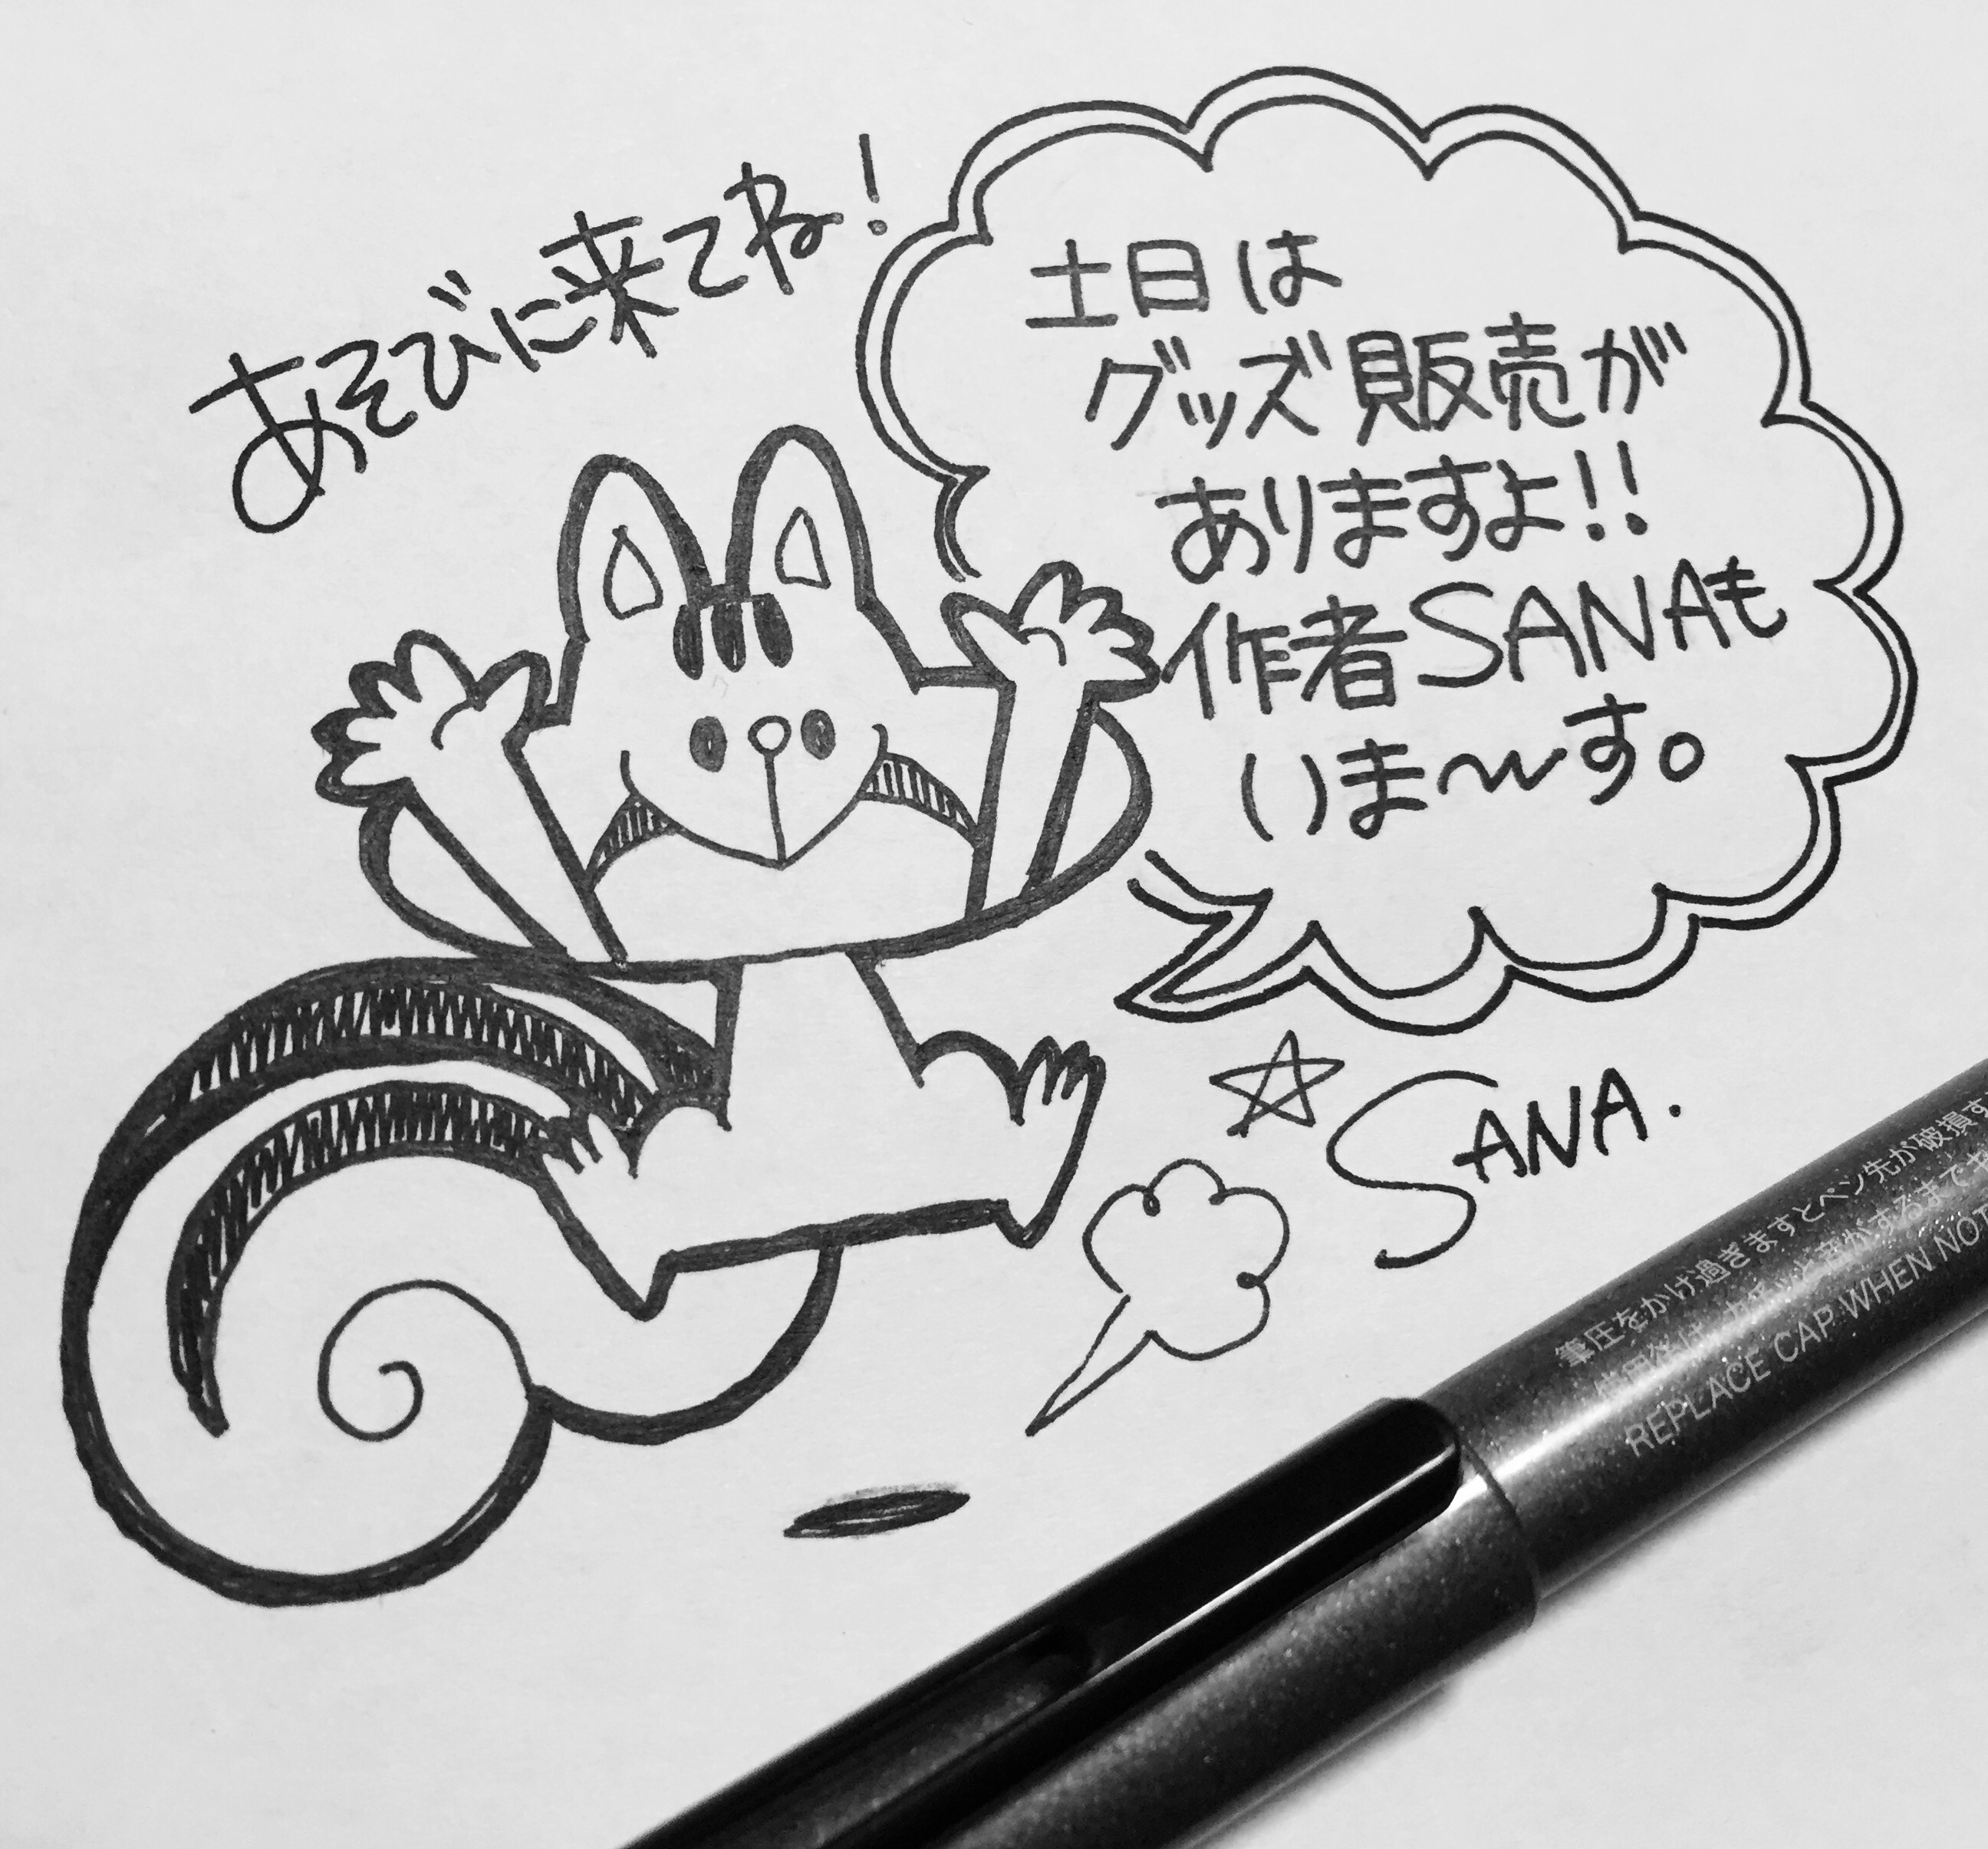 あそびに来てね!
土日は
グッズ販売が
ありますよ!!
作者SANAも
いま〜す。
SANA.
筆圧をかけ過ぎますとペン先が破損す
REPLACE CAP WHEN NOT